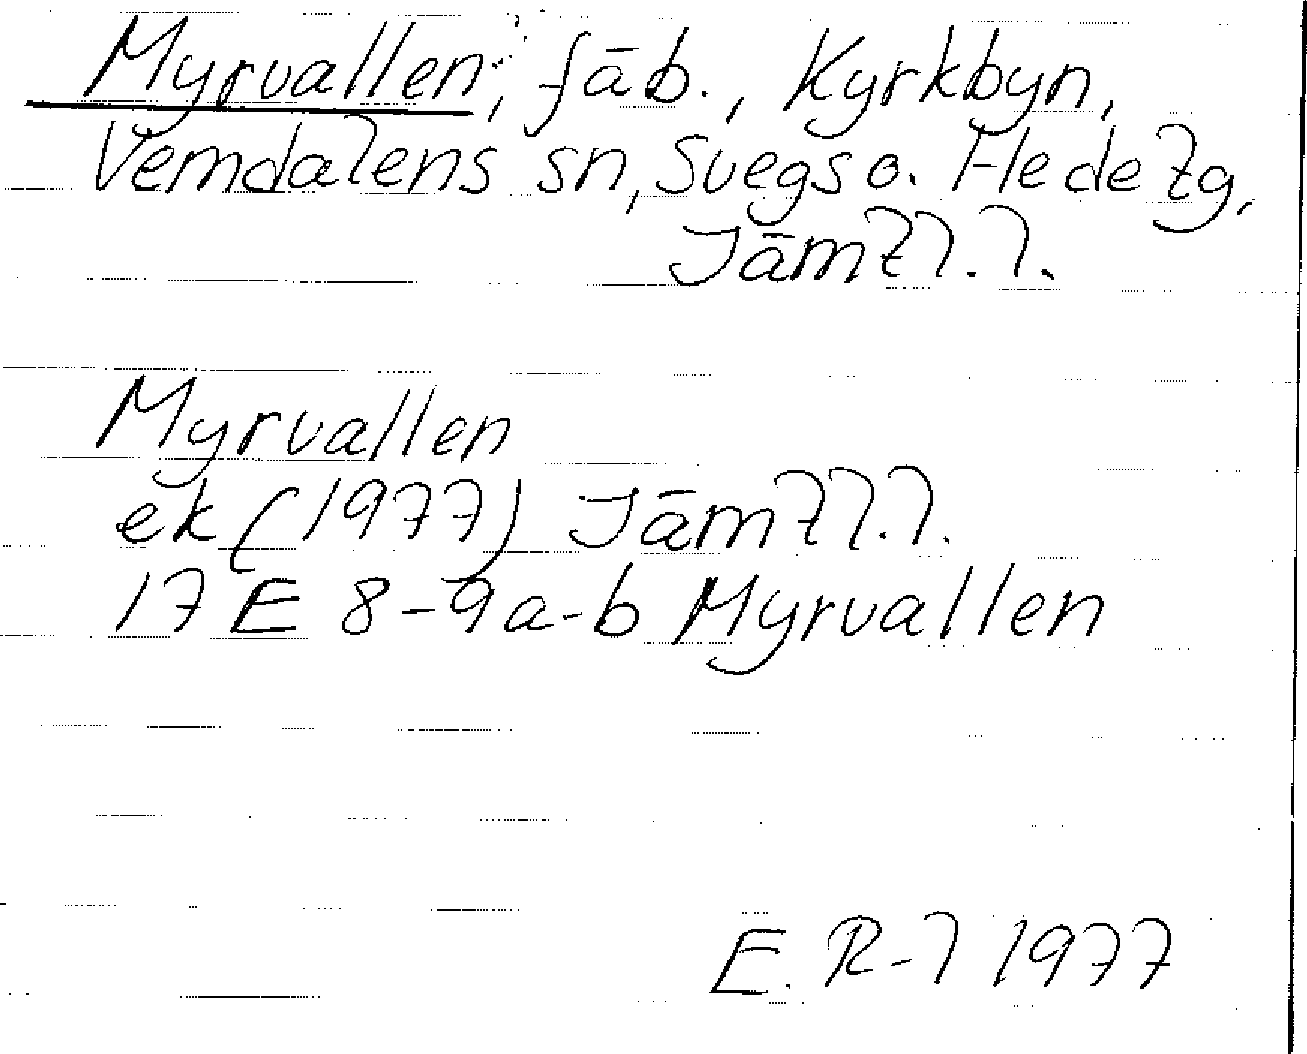 Myrvallen, fäb., Kyrkbyn,
Vemdalens sn, Svegs o. Hede tg,
Jämtl.l.
Myrvallen
ek (1977) Jämtl.l.
17 E 8-9 a-b Myrvallen
E. R-l 1977